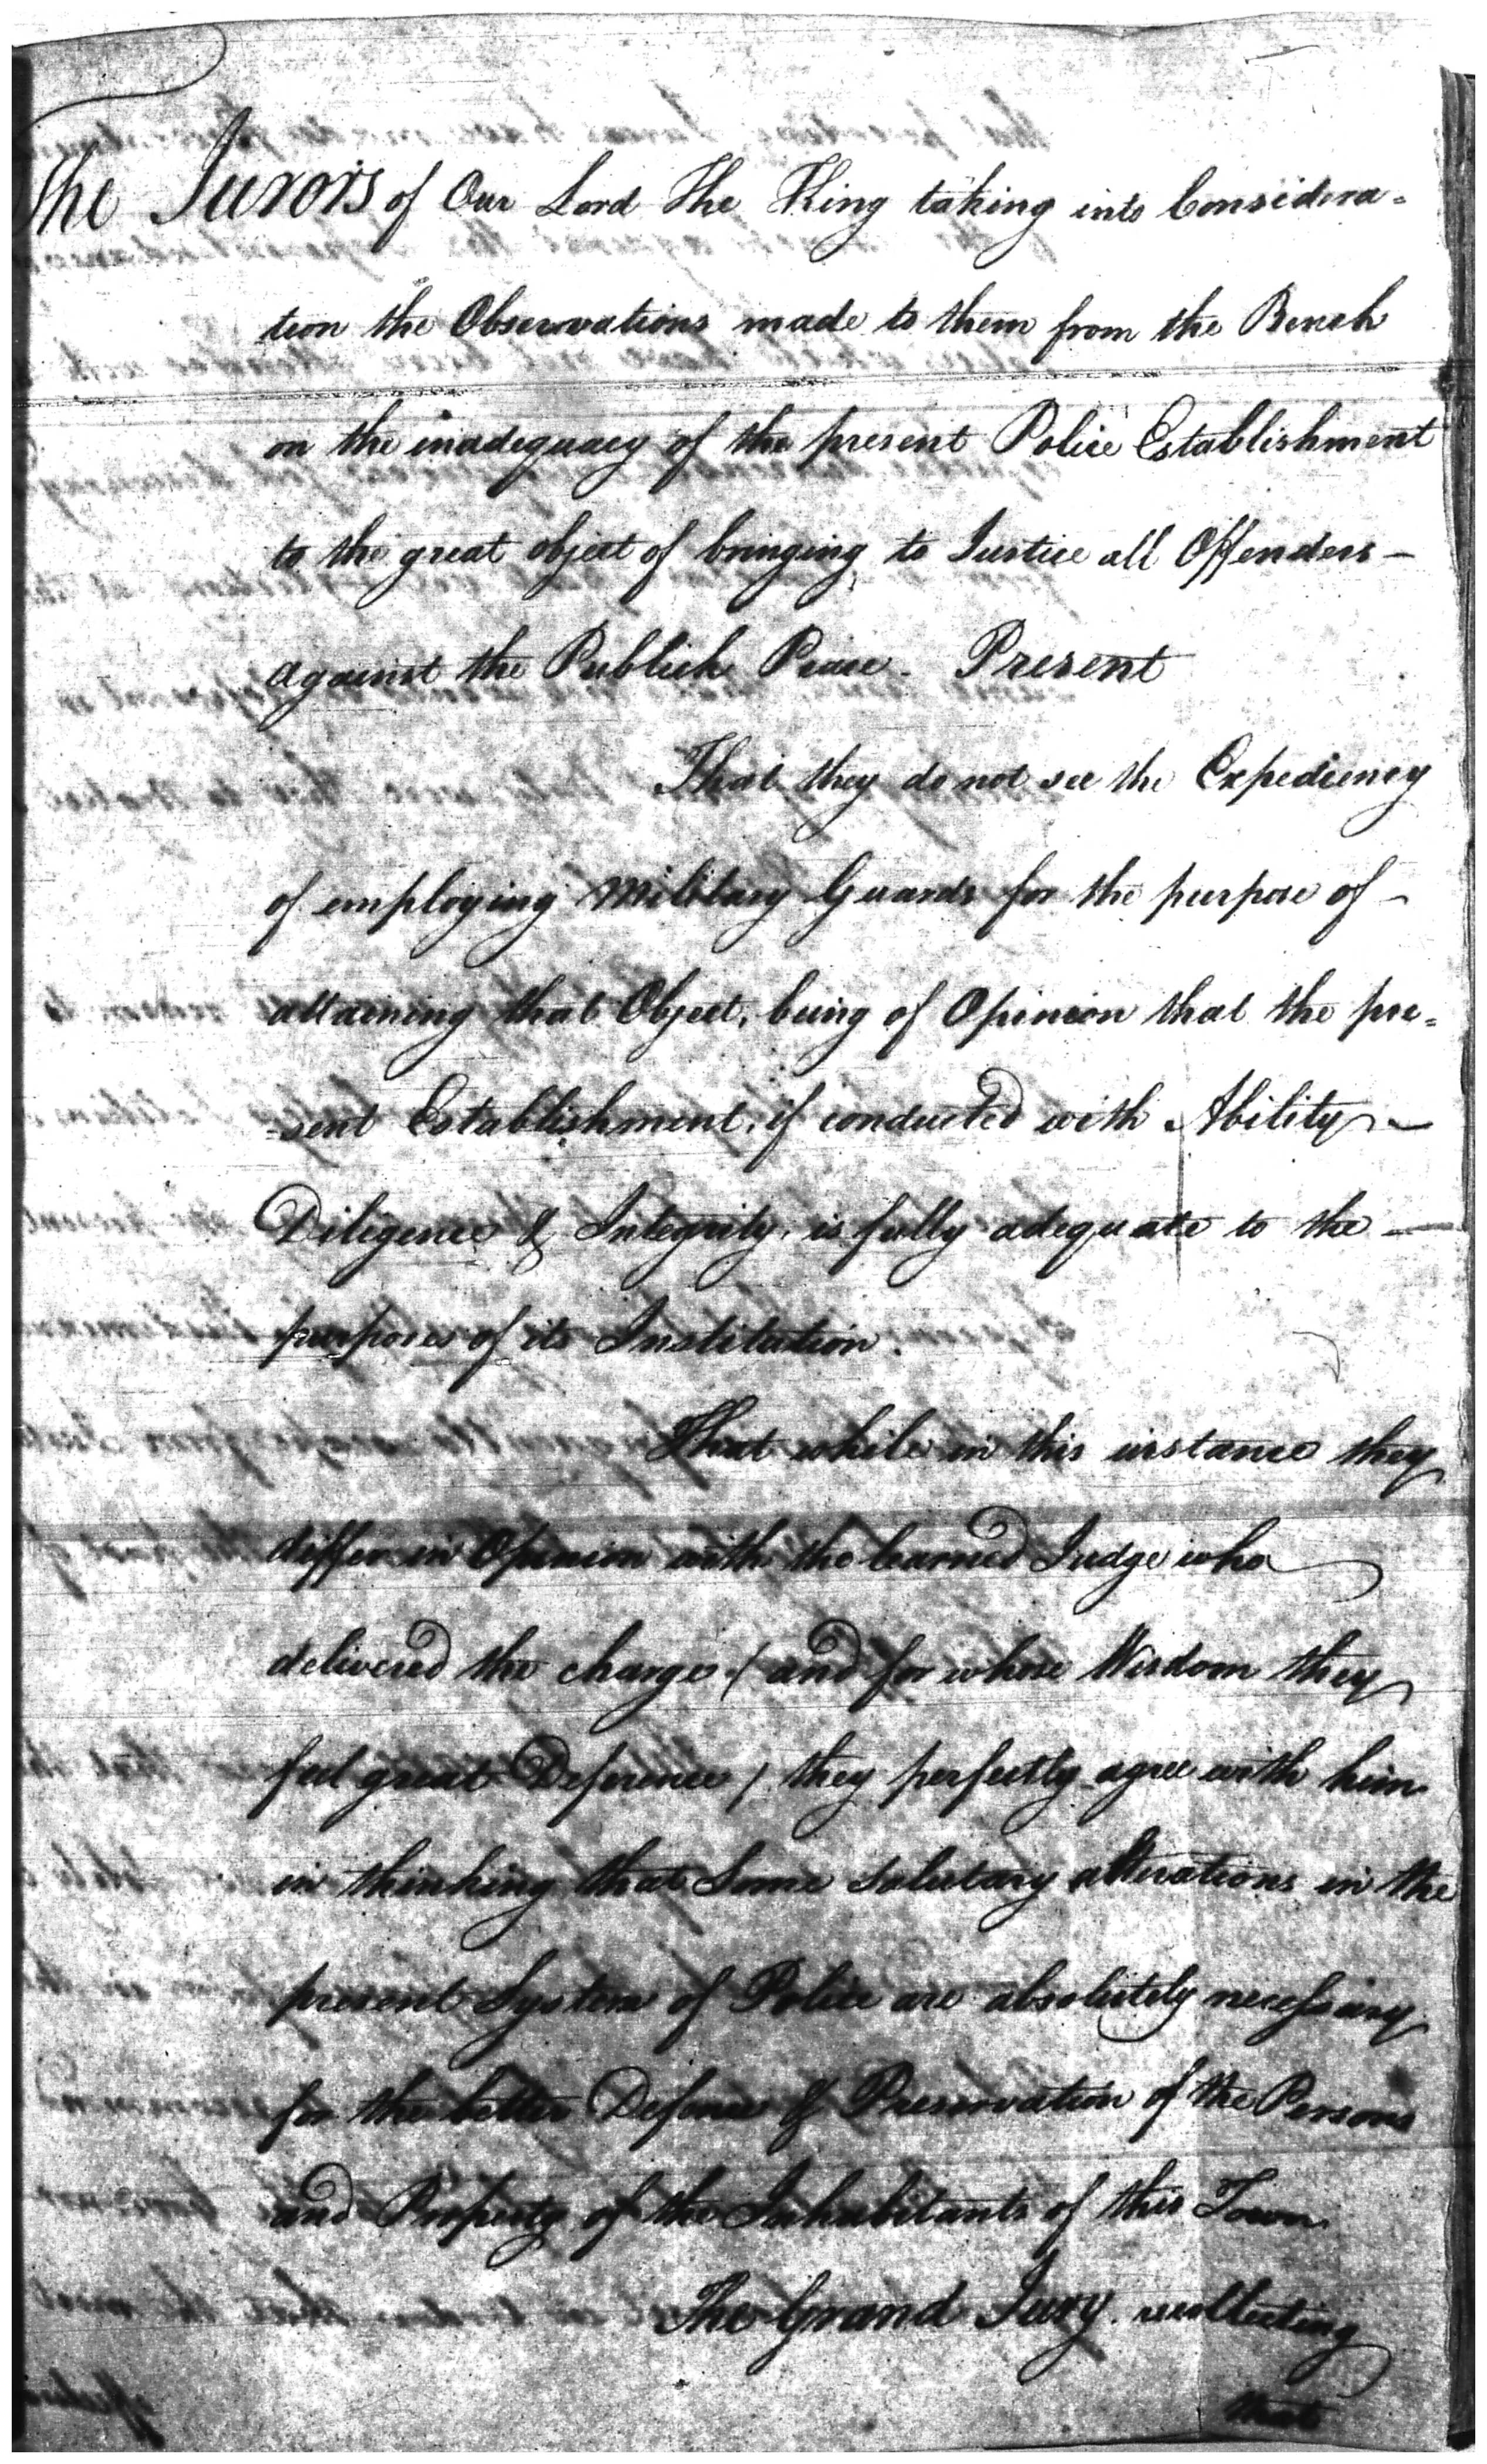 The Jurors of Our Lord The King taking into Considera=
tion the Observations made to them from the Bench
on the inadequacy of the present Police Establishment
to the great object of bringing to Justice all Offenders –
against the Publick Peace. Present
That they do not see the Expediency
of employing Military Guards for the purpose of –
attaining that Object, being of Opinion that the pre=
=sent Establishment, if conducted with Ability –
Diligence & Integrity, is fully adequate to the –
purposes of its Institution.
That while in this instance they
differ in Opinion with the learned Judge who
delivered the charge (and for whose Wisdom they
feel great Deference) they perfectly agree with him
in thinking that Some salutary alterations in the
present System of Police are absolutely necessary
for the better Defence & Preservation of the Persons
and Property of the Inhabitants of this Town.
The Grand Jury recollecting
that